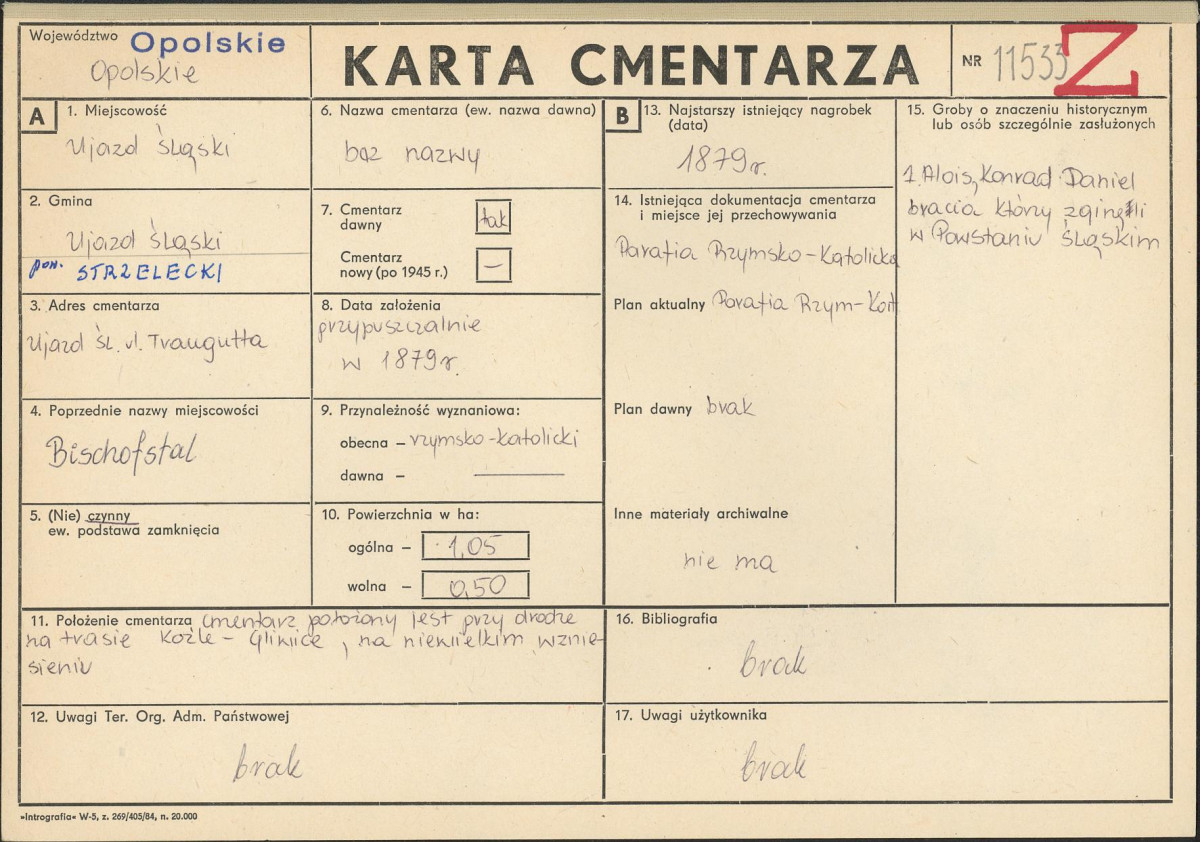 Województwo Opolskie
Opolskie
KARTA CMENTARZA
NR 11533 Z
A
1. Miejscowość
Ujazd Śląski
2. Gmina
Ujazd Śląski
pow. STRZELECKI
3. Adres cmentarza
Ujazd śl. ul. Traugutta
4. Poprzednie nazwy miejscowości
Bischofstal
5. (Nie) czynny
ew. podstawa zamknięcia
6. Nazwa cmentarza (ew. nazwa dawna)
bez nazwy
7. Cmentarz
dawny
tak
Cmentarz
nowy (po 1945 r.)
—
8. Data założenia
przypuszczalnie
w 1879r.
9. Przynależność wyznaniowa:
obecna – rzymsko-katolicki
dawna – ———
10. Powierzchnia w ha:
ogólna – 1,05
wolna – 0,50
11. Położenie cmentarza cmentarz położony jest przy drodze
na trasie Koźle – Gliwice, na niewielkim wznie-
sieniu
12. Uwagi Ter. Org. Adm. Państwowej
brak
B
13. Najstarszy istniejący nagrobek
(data)
1879r.
14. Istniejąca dokumentacja cmentarza
i miejsce jej przechowywania
Parafia Rzymsko-Katolicka
Plan aktualny Parafia Rzym-Kat
Plan dawny brak
Inne materiały archiwalne
nie ma
15. Groby o znaczeniu historycznym
lub osób szczególnie zasłużonych
1. Alois, Konrad Daniel
bracia którzy zginęli
w Powstaniu Śląskim
16. Bibliografia
brak
17. Uwagi użytkownika
brak
»Introgratia« W-5, z. 269/405/84, n. 20.000